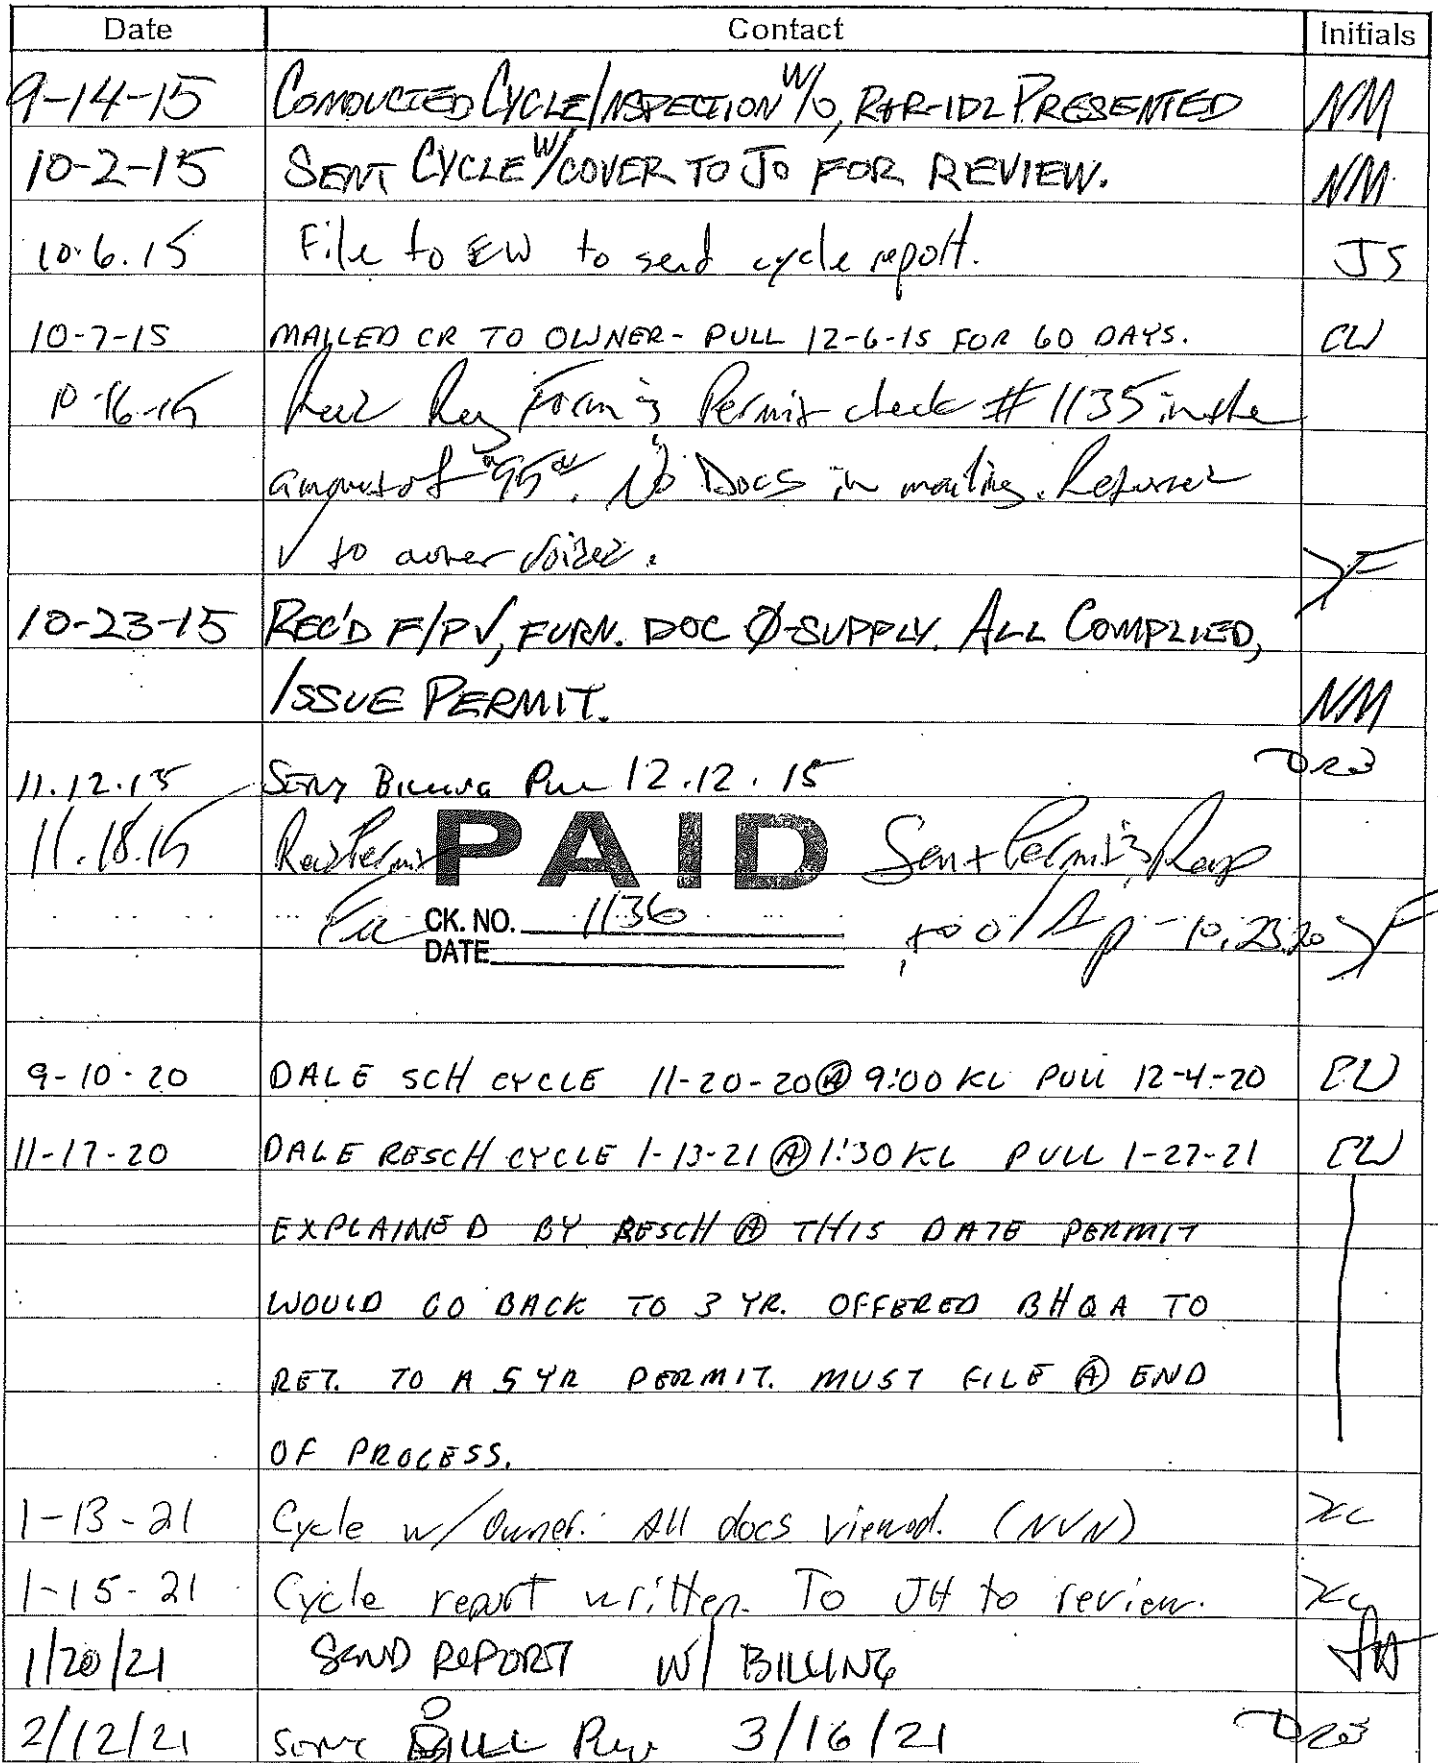 Date Contact Initials
9-14-15 CONDUCTED CYCLE INSPECTION W/O, R+R-ID2 PRESENTED NM
10-2-15 SENT CYCLE W/COVER TO JO FOR REVIEW. NM
10.6.15 File to EW to send cycle report. JS
10-7-15 MAILED CR TO OWNER - PULL 12-6-15 FOR 60 DAYS. EW
10-16-15 Rec'd Reg Form & Permit check #1135 in the
amount of 95. No Docs in mailing. Returned
✓ to owner voided. JF
10-23-15 REC'D F/PV, FURN. DOC Ø-SUPPLY. ALL COMPLIED,
ISSUE PERMIT. NM
11.12.15 SENT BILLING Pull 12.12.15 DRB
11.18.15 Rec'd Permit PAID Sent Permit & Reg
Fee CK. NO. 1136 to o/ 10.23.20 JF
DATE
9-10-20 DALE SCH CYCLE 11-20-20 @ 9:00 KL PULL 12-4-20 EW
11-17-20 DALE RESCH CYCLE 1-13-21 @ 1:30 KL PULL 1-27-21 EW
EXPLAINED BY RESCH @ THIS DATE PERMIT
WOULD GO BACK TO 3 YR. OFFERED BHQA TO
RET. TO A 5 YR PERMIT. MUST FILE @ END
OF PROCESS.
1-13-21 Cycle w/ Owner. All docs viewed. (NVN) KL
1-15-21 Cycle report written. To JH to review. KL
1/20/21 SEND REPORT W/ BILLING JH
2/12/21 SENT BILL Pull 3/16/21 DRB